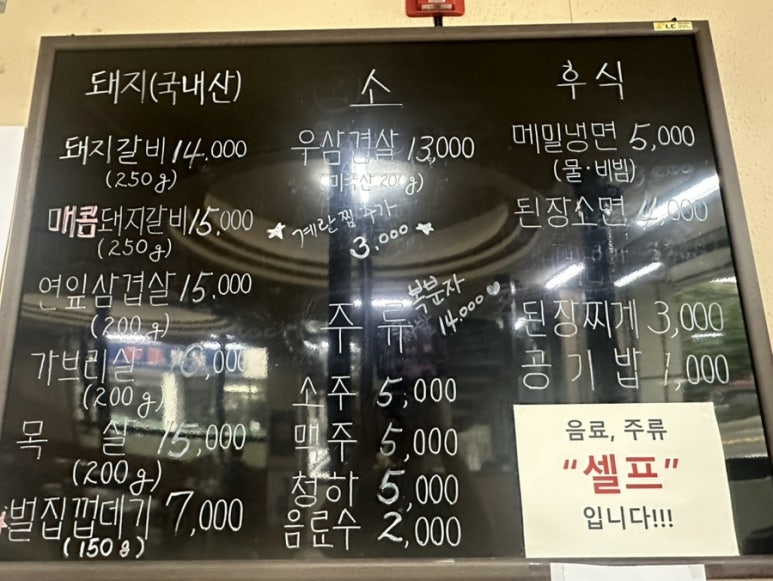 돼지(국내산)
돼지갈비 14.000
(250g)
매콤돼지갈비 15,000
(250g)
연잎삼겹살 15.000
(200g)
가브리살
(200g)
목 살 15,000
(200g)
벌집껍데기 7,000
(150g)
소
우삼겹살 13,000
(미국산 200g)
★ 계란찜 추가 ★
3.000
주류
복분자
14.000 ♥
소주 5,000
맥주 5,000
청하 5,000
음료수 2,000
후식
메밀냉면 5,000
(물·비빔)
된장소면 4,000
된장찌게 3,000
공기밥 1,000
음료, 주류
"셀프"
입니다!!!